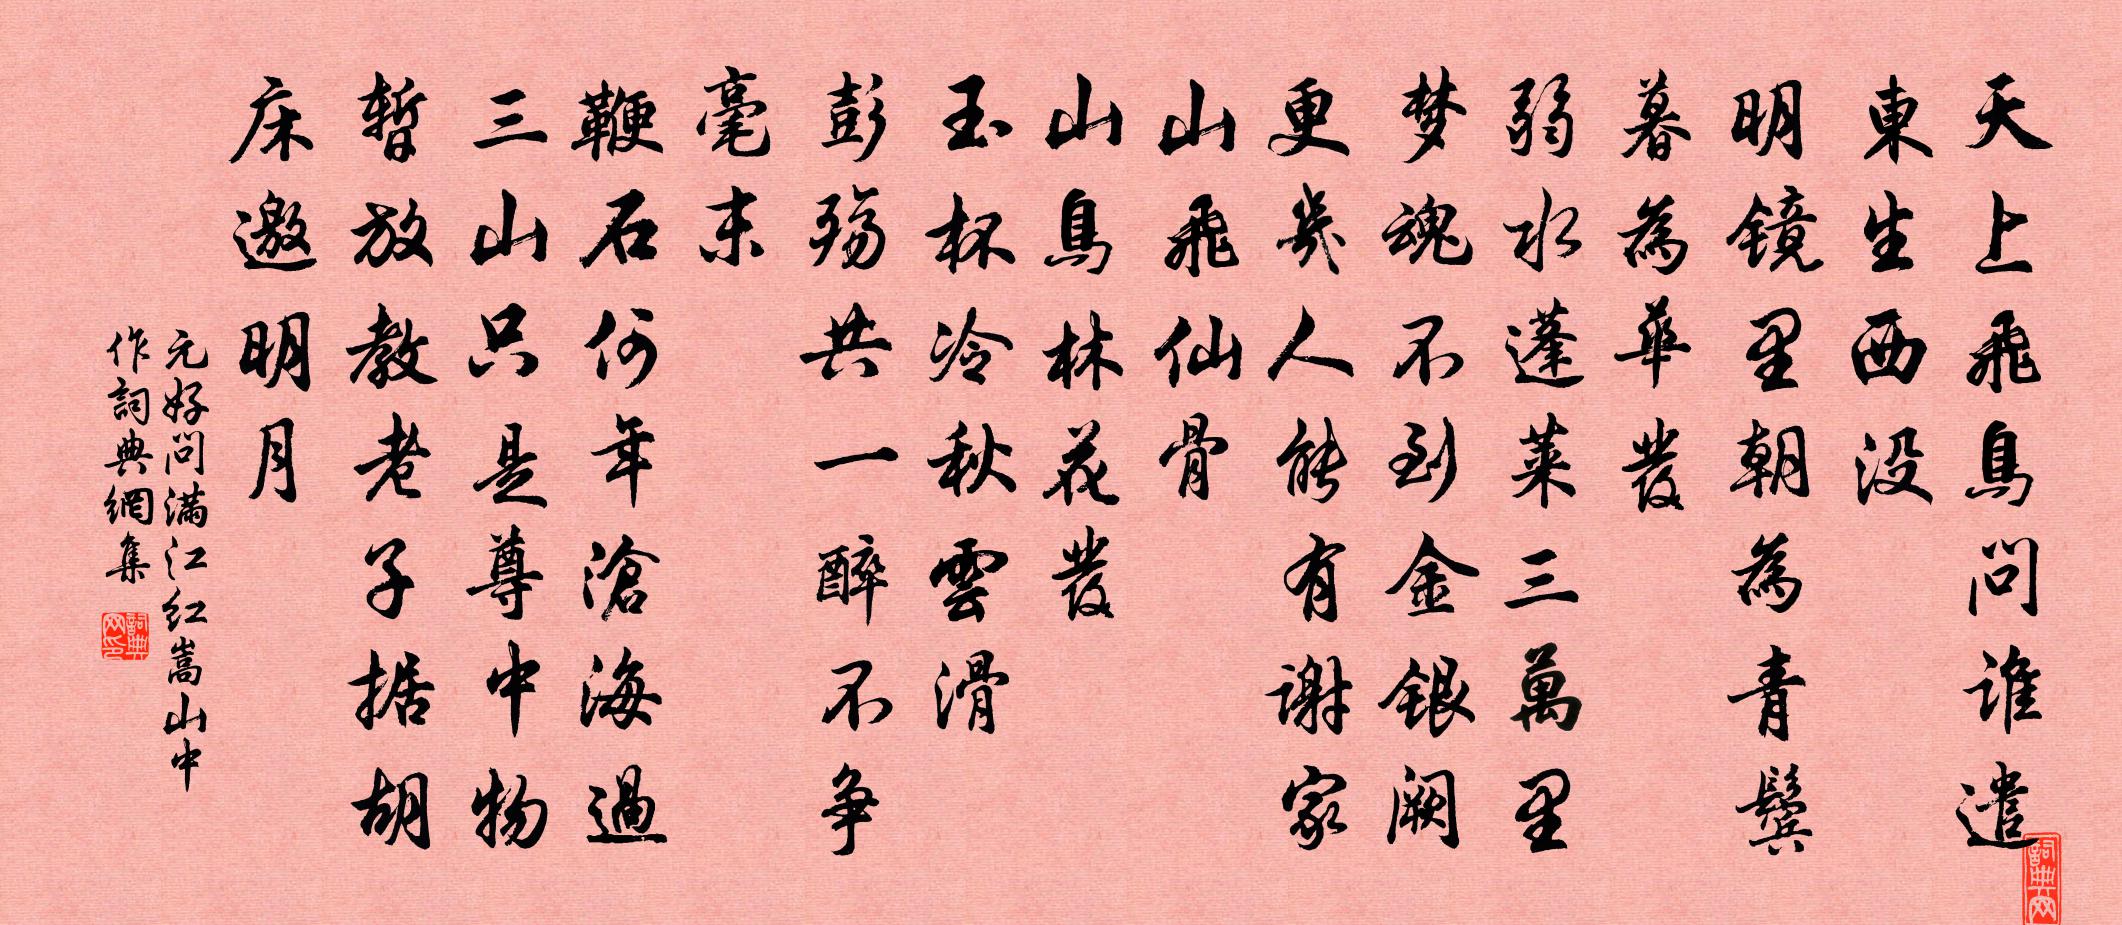 天上飛鳥問誰遣
東生西没
明镜里朝為青鬓
暮為華發
弱水蓬萊三萬里
梦魂不到金銀阙
更幾人能有谢家
山飛仙骨
山鳥林花發
玉杯冷秋雲滑
彭殇共一醉不争
毫末
鞭石何年滄海過
三山只是尊中物
暫放教老子据胡
床邀明月
元好问满江红嵩山中
作詞典網集
詞典网印
詞典网